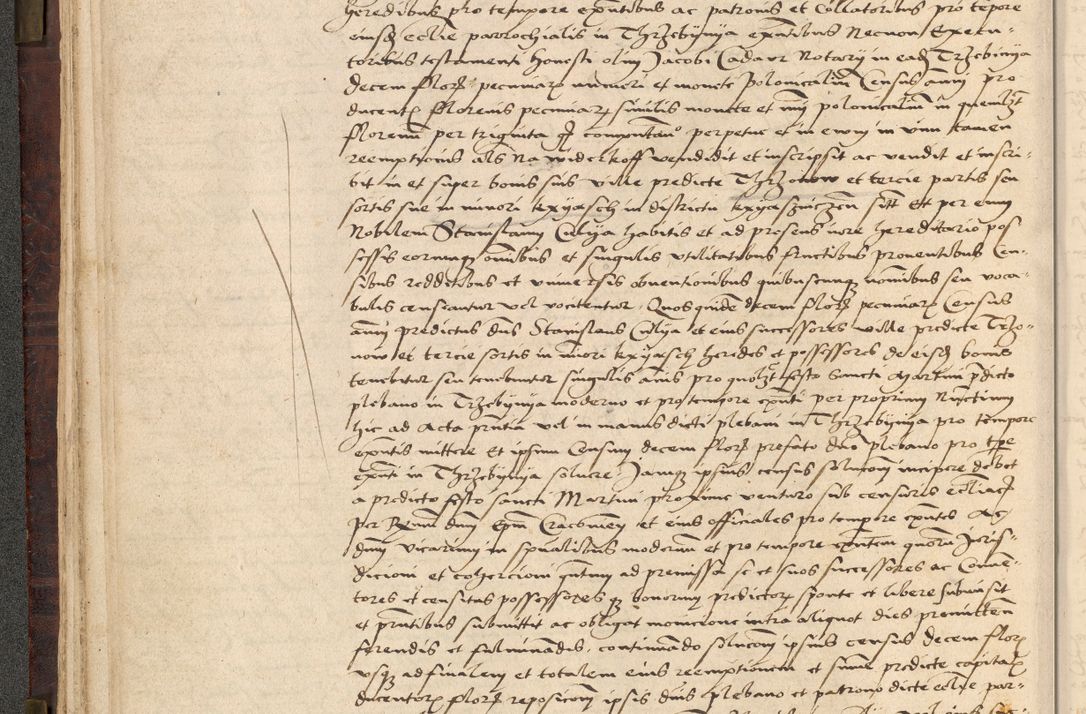 heredibus pro tempore exntibus ac patronis et Collatoribus pro tpore
eiusd ecclie parrochialis in Thrzebynya exntibus Necnon Execu-
toribus testamenti honesti olim Jacobi Cadavr Notarij in ead Trzebinya
decem flor pecuniar numeri et monete polonicaliu Census annui pro
ducentis florenis pecuniar similis monete et nui polonicaliu in quemlzt
florenu per triginta gr computan perpetue et in ewu in vim tamen
reemptionis als Na widerkoff vendidit et inscripsit ac vendit et inscri-
bit in et super bonis suis ville predicte Thrzonow et tercie partis seu
sortis sue in minori kxyasch in districtu sitt Et per eum
Nobilem Stanislaum Culya habitis et ad presens iure hereditario pos
sessis eorumq omibus et singulis vtilitatibus fructibus prouentibus Cen-
sibus redditibus et vniuersis obuentionibus quibuscunq nomibus seu voca-
bulis censeantur vel vocitentur Quosquide decem flor pecuniar Census
annui predictus dns Stanislaus Culya et eius successores ville predicte Trzo-
now et tercie sortis in minori kxyasch heredes et possessores de eisd bonis
tenebitur seu tenebuntur singulis annis pro quolzt festo Sancti Martini pdicto
plebano in Trzebynya moderno et pro tempore exnti per proprium Nunctium
hic ad Acta pntia vel in manus dicti plebani in Thrzebynya pro tempore
exntis mittere Et ipsum Censum decem flor prefato dno plebano pro tpe
exnti in Thrzebynya soluere Jamq ipsius census soluconi incipere debet
a predicto festo sancti Martini proxime venturo sub censuris ecclicis
per Rndum dnm Epm Cracovien et eius officiales pro tempore exntes Ac
dnm vicarium in spualibus modernum et pro tempore exntem quoru Juris-
dicioni et cohercioni quntum ad premissa se et suos successores ac Conue-
tores et censitas possessores q bonorum predictor sponte et libere subiecit
et pntibus submittit ac obligat monicione intra aliquot dies premitten
ferendis et fulminandis, continuado soluconi ipsius census decem flor
vsq ad finalem et totalem eius reemptionem et sume predicte capital
ducentor flor reposiconi ipsis dnis plebano et patrono dicte ecclie par-